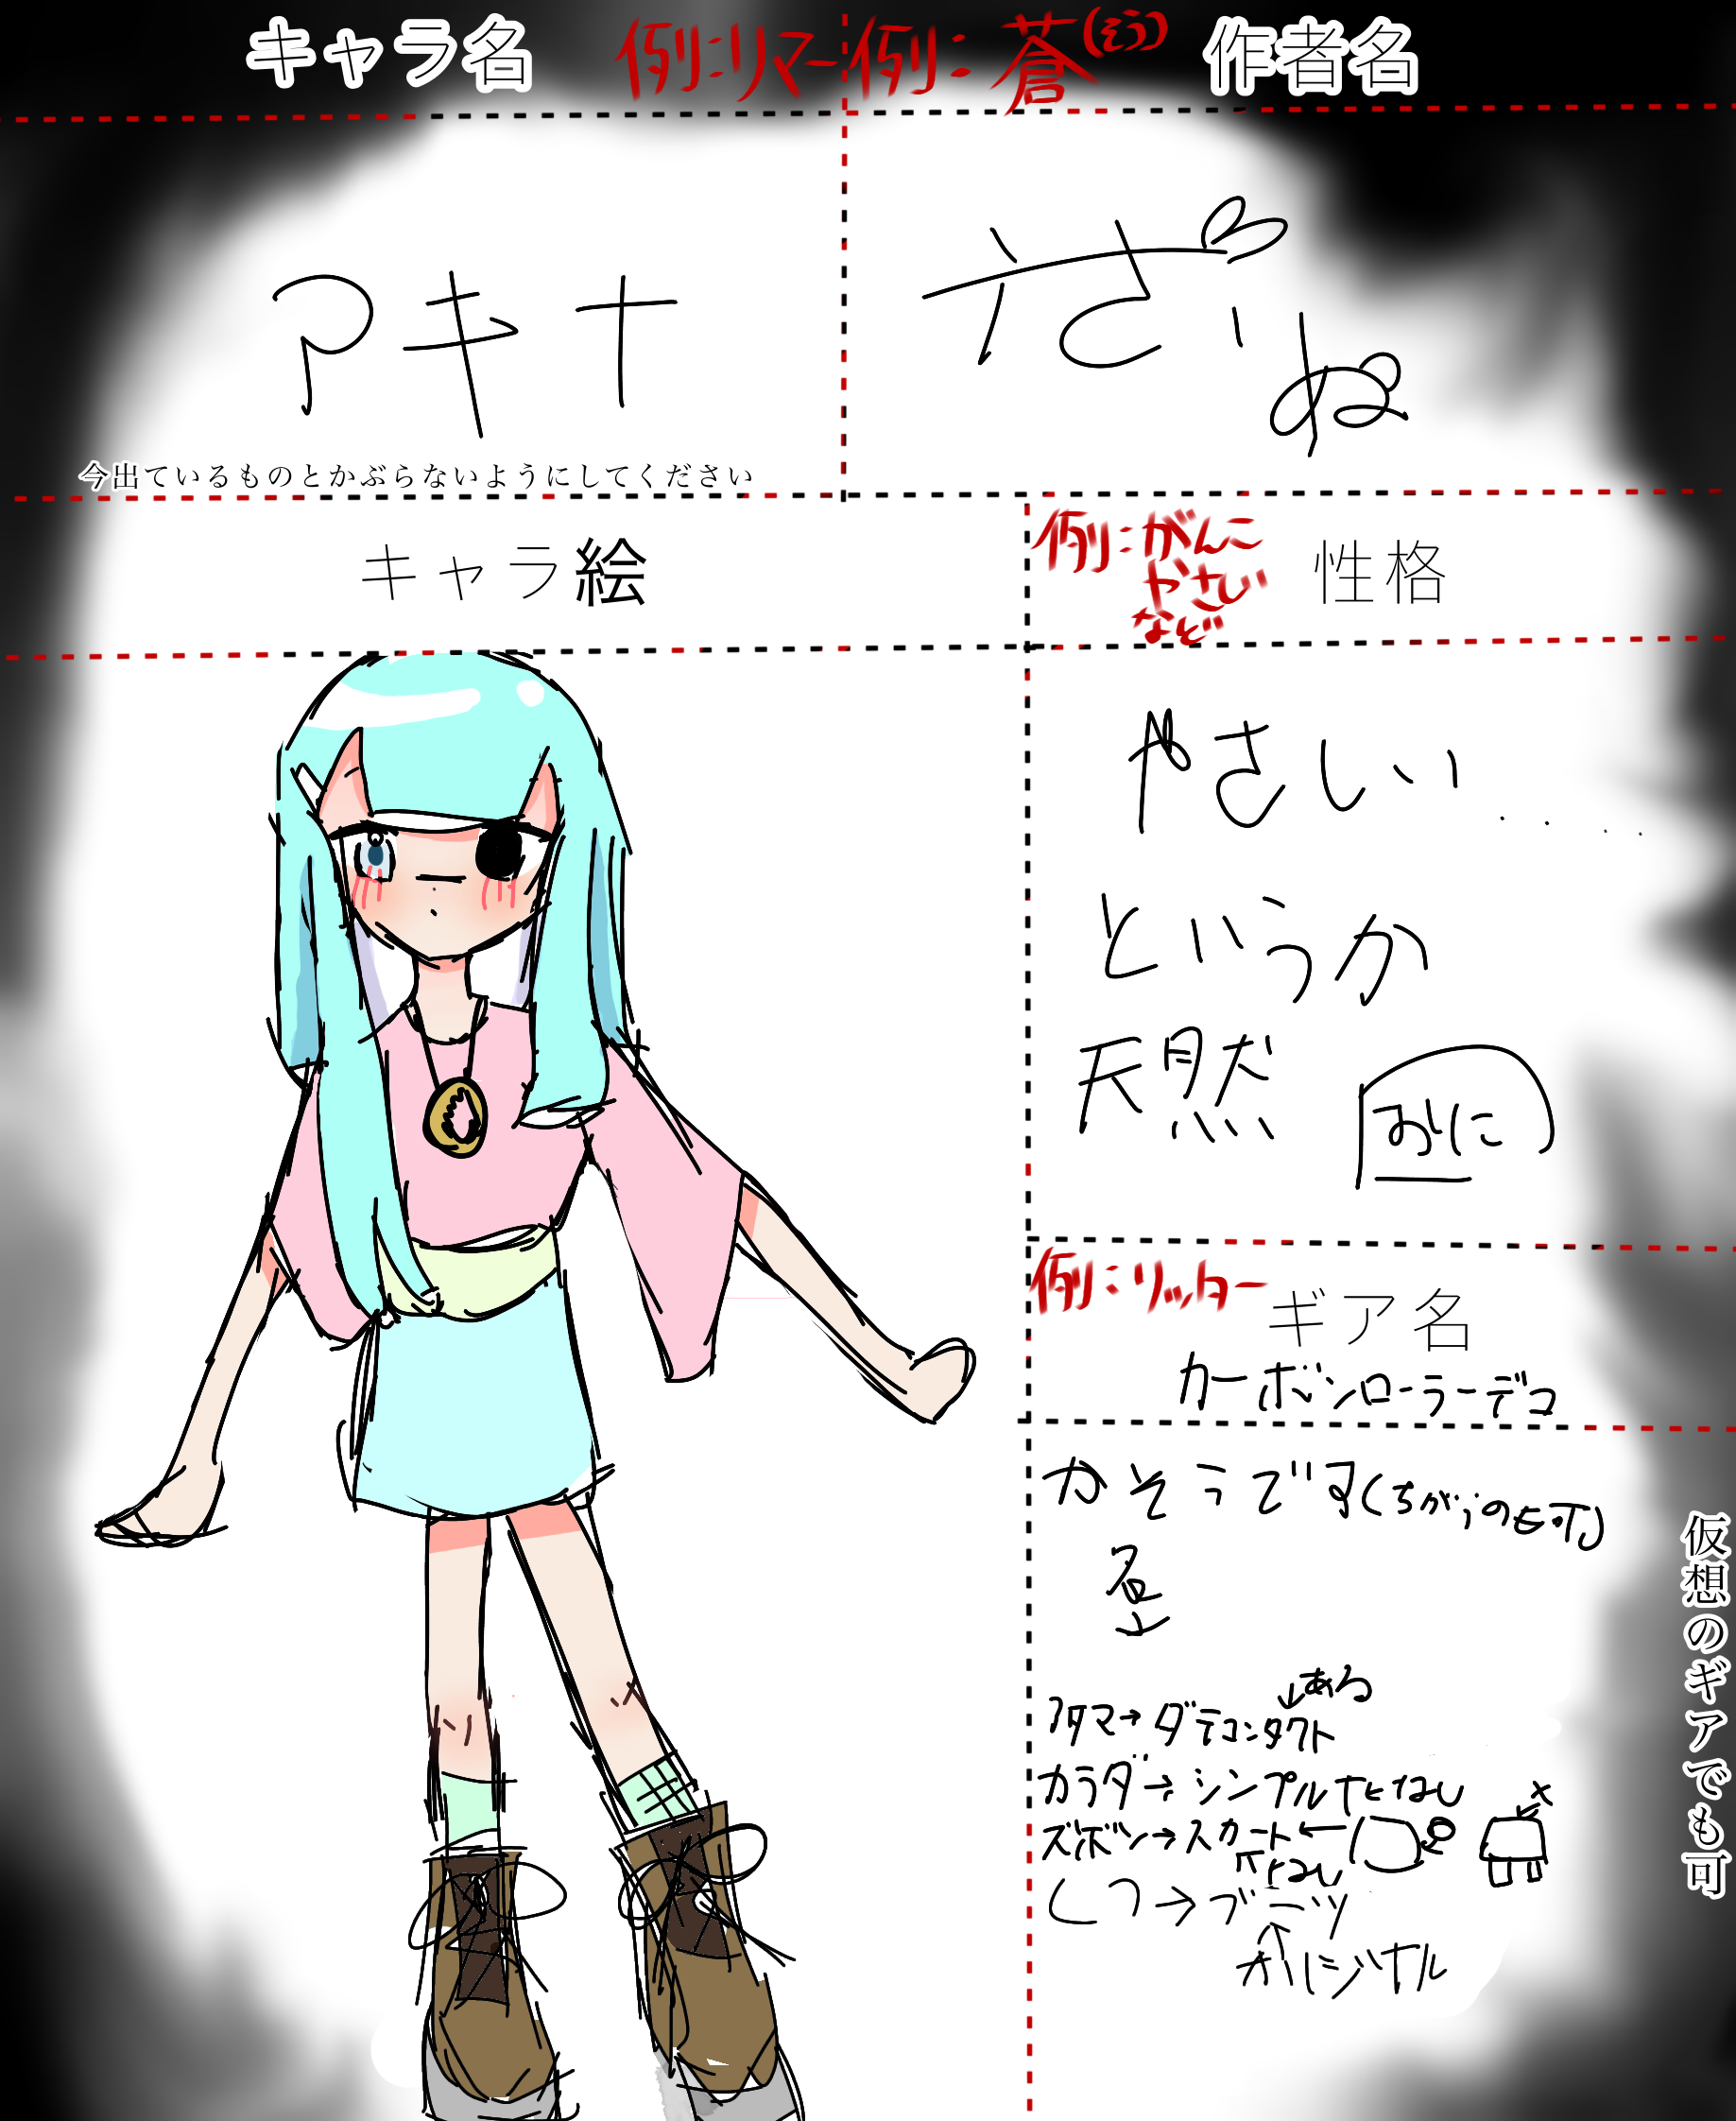 キャラ名
例:リマー
例:蒼(そう)
作者名
アキナ
今出ているものとかぶらないようにしてください
キャラ絵
例:がんこ
やさしい
など
性格
やさしい....
というか
天然
おに
例:リッター
ギア名
カーボンローラーデコ
かそうです(ちがうのも可)
↓ある
アタマ→ダテコンタクト
カラダ→シンプル
ズボン→スカート←
くつ→ブーツ
↑
オリジナル
仮想のギアでも可